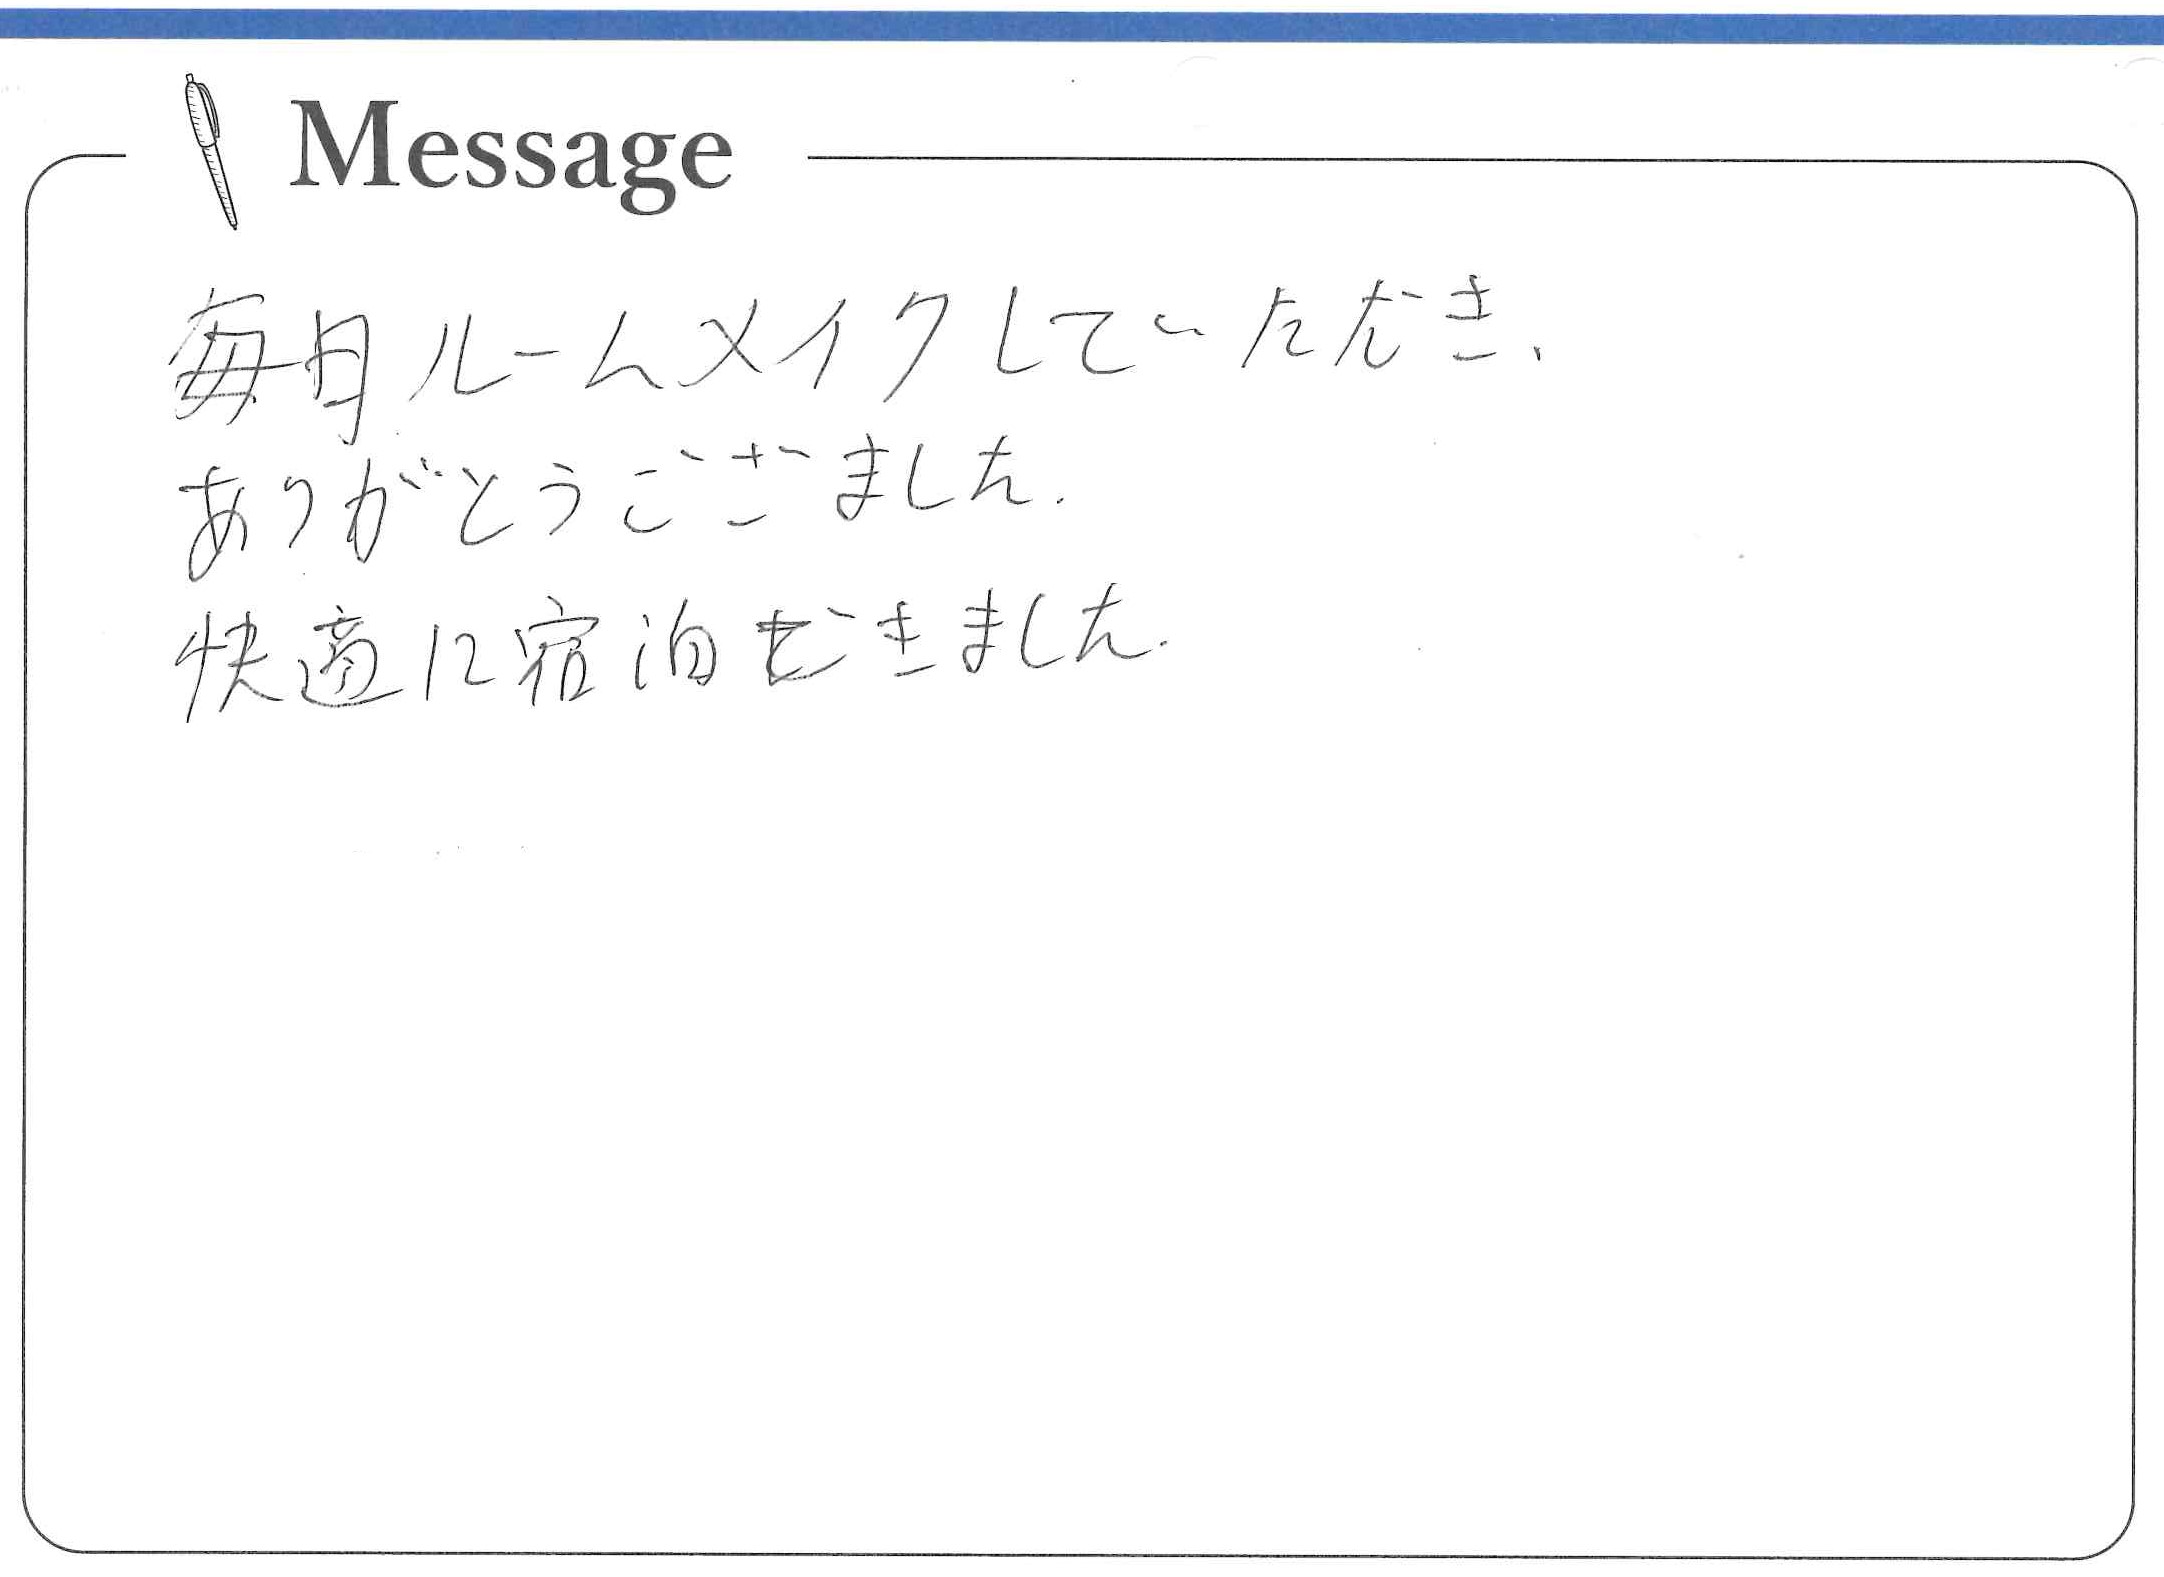 Message
毎日ルームメイクしていただき、
ありがとうござました.
快適に宿泊できました.